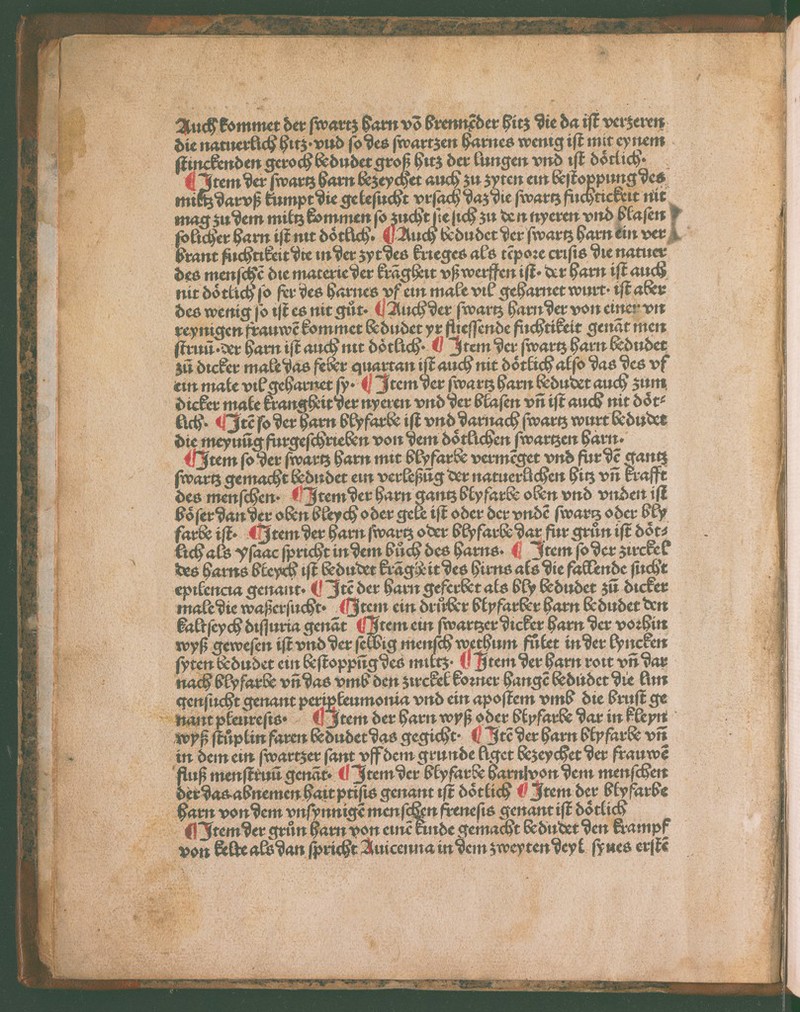 Auch kommet der ſwartz harn võ brennẽder hitz die da iſt verzeren
die natuerlich hitz· vnd ſo des ſwartzen harnes wenig iſt mit eynem
ſtinckenden geroch bedudet groß hitz der lungen vnd iſt doͤtlich·
¶ Item der ſwartz harn bezeychet auch zu zyten ein beſtoppung des
miltz darvß kumpt die geleſucht vrſach daz die ſwartz fuchtickeit nit
mag zu dem miltz kommen ſo zucht ſie ſich zu den nyeren vnd blaſen
ſolicher harn iſt nit doͤtlich· ¶ Auch bedudet der ſwartz harn ein ver
brant fuchtikeit die in der zyt des krieges als tẽpore criſis die natuer
des menſchẽ die materie der krãgheit vß werffen iſt· der harn iſt auch
nit doͤtlich ſo fer des harnes vf ein male vil geharnet wurt· iſt aber
des wenig ſo iſt es nit guͦt· ¶ Auch der ſwartz harn der von einer vn
reynigen frauwẽ kommet bedudet yr flieſſende fuchtikeit genãt men
ſtruũ· der harn iſt auch nit doͤtlich· ¶ Item der ſwartz harn bedudet
zuͦ dicker male das feber quartan iſt auch nit doͤtlich alſo das des vf
ein male vil geharnet ſy· ¶ Item der ſwartz harn bedudet auch zum
dicker male krangheit der nyeren vnd der blaſen vñ iſt auch nit doͤt⸗
lich· ¶ Itẽ ſo der harn blyfarbe iſt vnd darnach ſwartz wurt bedudet
die meynũg furgeſchrieben von dem doͤtlichen ſwartzen harn·
¶ Item ſo der ſwartz harn mit blyfarbe vermẽget vnd fur dẽ gantz
ſwartz gemacht bedudet ein verleßũg der natuerlichen hitz vñ krafft
des menſchen· ¶ Item der harn gantz blyfarbe oben vnd vnden iſt
boͤſer dan der oben bleych oder gele iſt oder der vndẽ ſwartz oder bly
farbe iſt· ¶ Item der harn ſwartz oder blyfarbe dar fur gruͤn iſt doͤt⸗
lich als yſaac ſpricht in dem buͦch des harns· ¶ Item ſo der zirckel
des harns bleych iſt bedudet krãgheit des hirns als die fallende ſucht
epilencia genant· ¶ Itẽ der harn geferbet als bly bedudet zuͦ dicker
male die waßerſucht· ¶ Item ein druͤber blyfarber harn bedudet den
kaltſeych diſſuria genãt ¶ Item ein ſwartzer dicker harn der vorhin
wyß geweſen iſt vnd der ſelbig menſch wethum fuͤlet in der lyncken
ſyten bedudet ein beſtoppũg des miltz· ¶ Item der harn roit vñ dar
nach blyfarbe vñ das vmb den zirckel korner hangẽ bedudet die lun
genſucht genant peripleumonia vnd ein apoſtem vmb die bruſt ge
nant pleureſis· ¶ Item der harn wyß oder blyfarbe dar in kleyn
wyß ſtuͤplin faren bedudet das gegicht· ¶ Itẽ der harn blyfarbe vñ
in dem ein ſwartzer ſant vff dem grunde liget bezeychet der frauwẽ
fluß menſtruũ genãt· ¶ Item der blyfarbe harn von dem menſchen
der das abnemen hait ptiſis genant iſt doͤtlich ¶ Item der blyfarbe
harn von dem vnſynnigẽ menſchen freneſis genant iſt doͤtlich
¶ Item der gruͤn harn von einẽ kinde gemacht bedudet den krampf
von kelte als dan ſpricht Auicenna in dem zweyten deyl ſynes erſtẽ